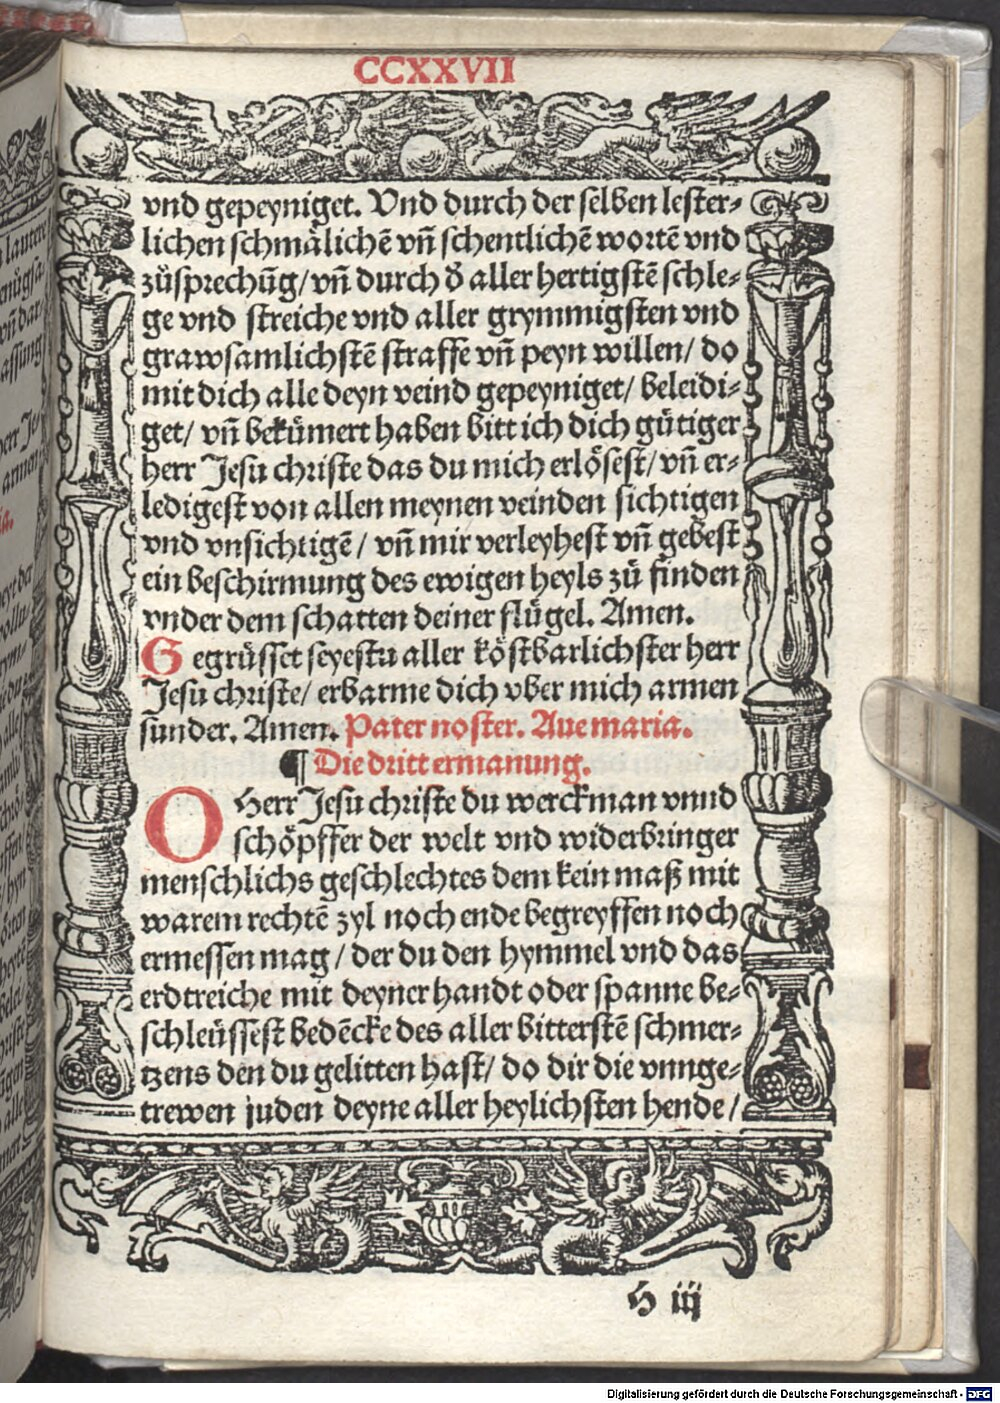 CCXXVII
vnd gepeyniget. Vnd durch der selben lester-
lichen schmålichē vn̄ schentlichē wortē vnd
zůsprechūg/ vn̄ durch ð aller hertigstē schle-
ge vnd streiche vnd aller grymmigsten vnd
grawsamlichstē straffe vn̄ peyn willen/ do
mit dich alle deyn veind gepeyniget/ beleidi-
get/ vn̄ bekümert haben bitt ich dich gütiger
herr Jesu christe das du mich erlösest/ vn̄ er-
ledigest von allen meynen veinden sichtigen
vnd vnsichtigē/ vn̄ mir verleyhest vn̄ gebest
ein beschirmung des ewigen heyls zů finden
vnder dem schatten deiner flügel. Amen.
Gegrüsset seyestu aller köstbarlichster herr
Jesu christe/ erbarme dich vber mich armen
sunder. Amen. Pater noster. Aue maria.
¶ Die dritt ermanung.
O Herr Jesu christe du werckman vnnd
schöpffer der welt vnd widerbringer
menschlichs geschlechtes dem kein maß mit
warem rechtē zyl noch ende begreyffen noch
ermessen mag/ der du den hymmel vnd das
erdtreiche mit deyner handt oder spanne be-
schleüssest bedēcke des aller bitterstē schmer-
tzens den du gelitten hast/ do dir die vnnge-
trewen juden deyne aller heylichsten hende/
H iij
n lautere
vn̄ dar
assung
herr Jes
armen
ia.
heyt der
alle
Digitalisierung gefördert durch die Deutsche Forschungsgemeinschaft - DFG